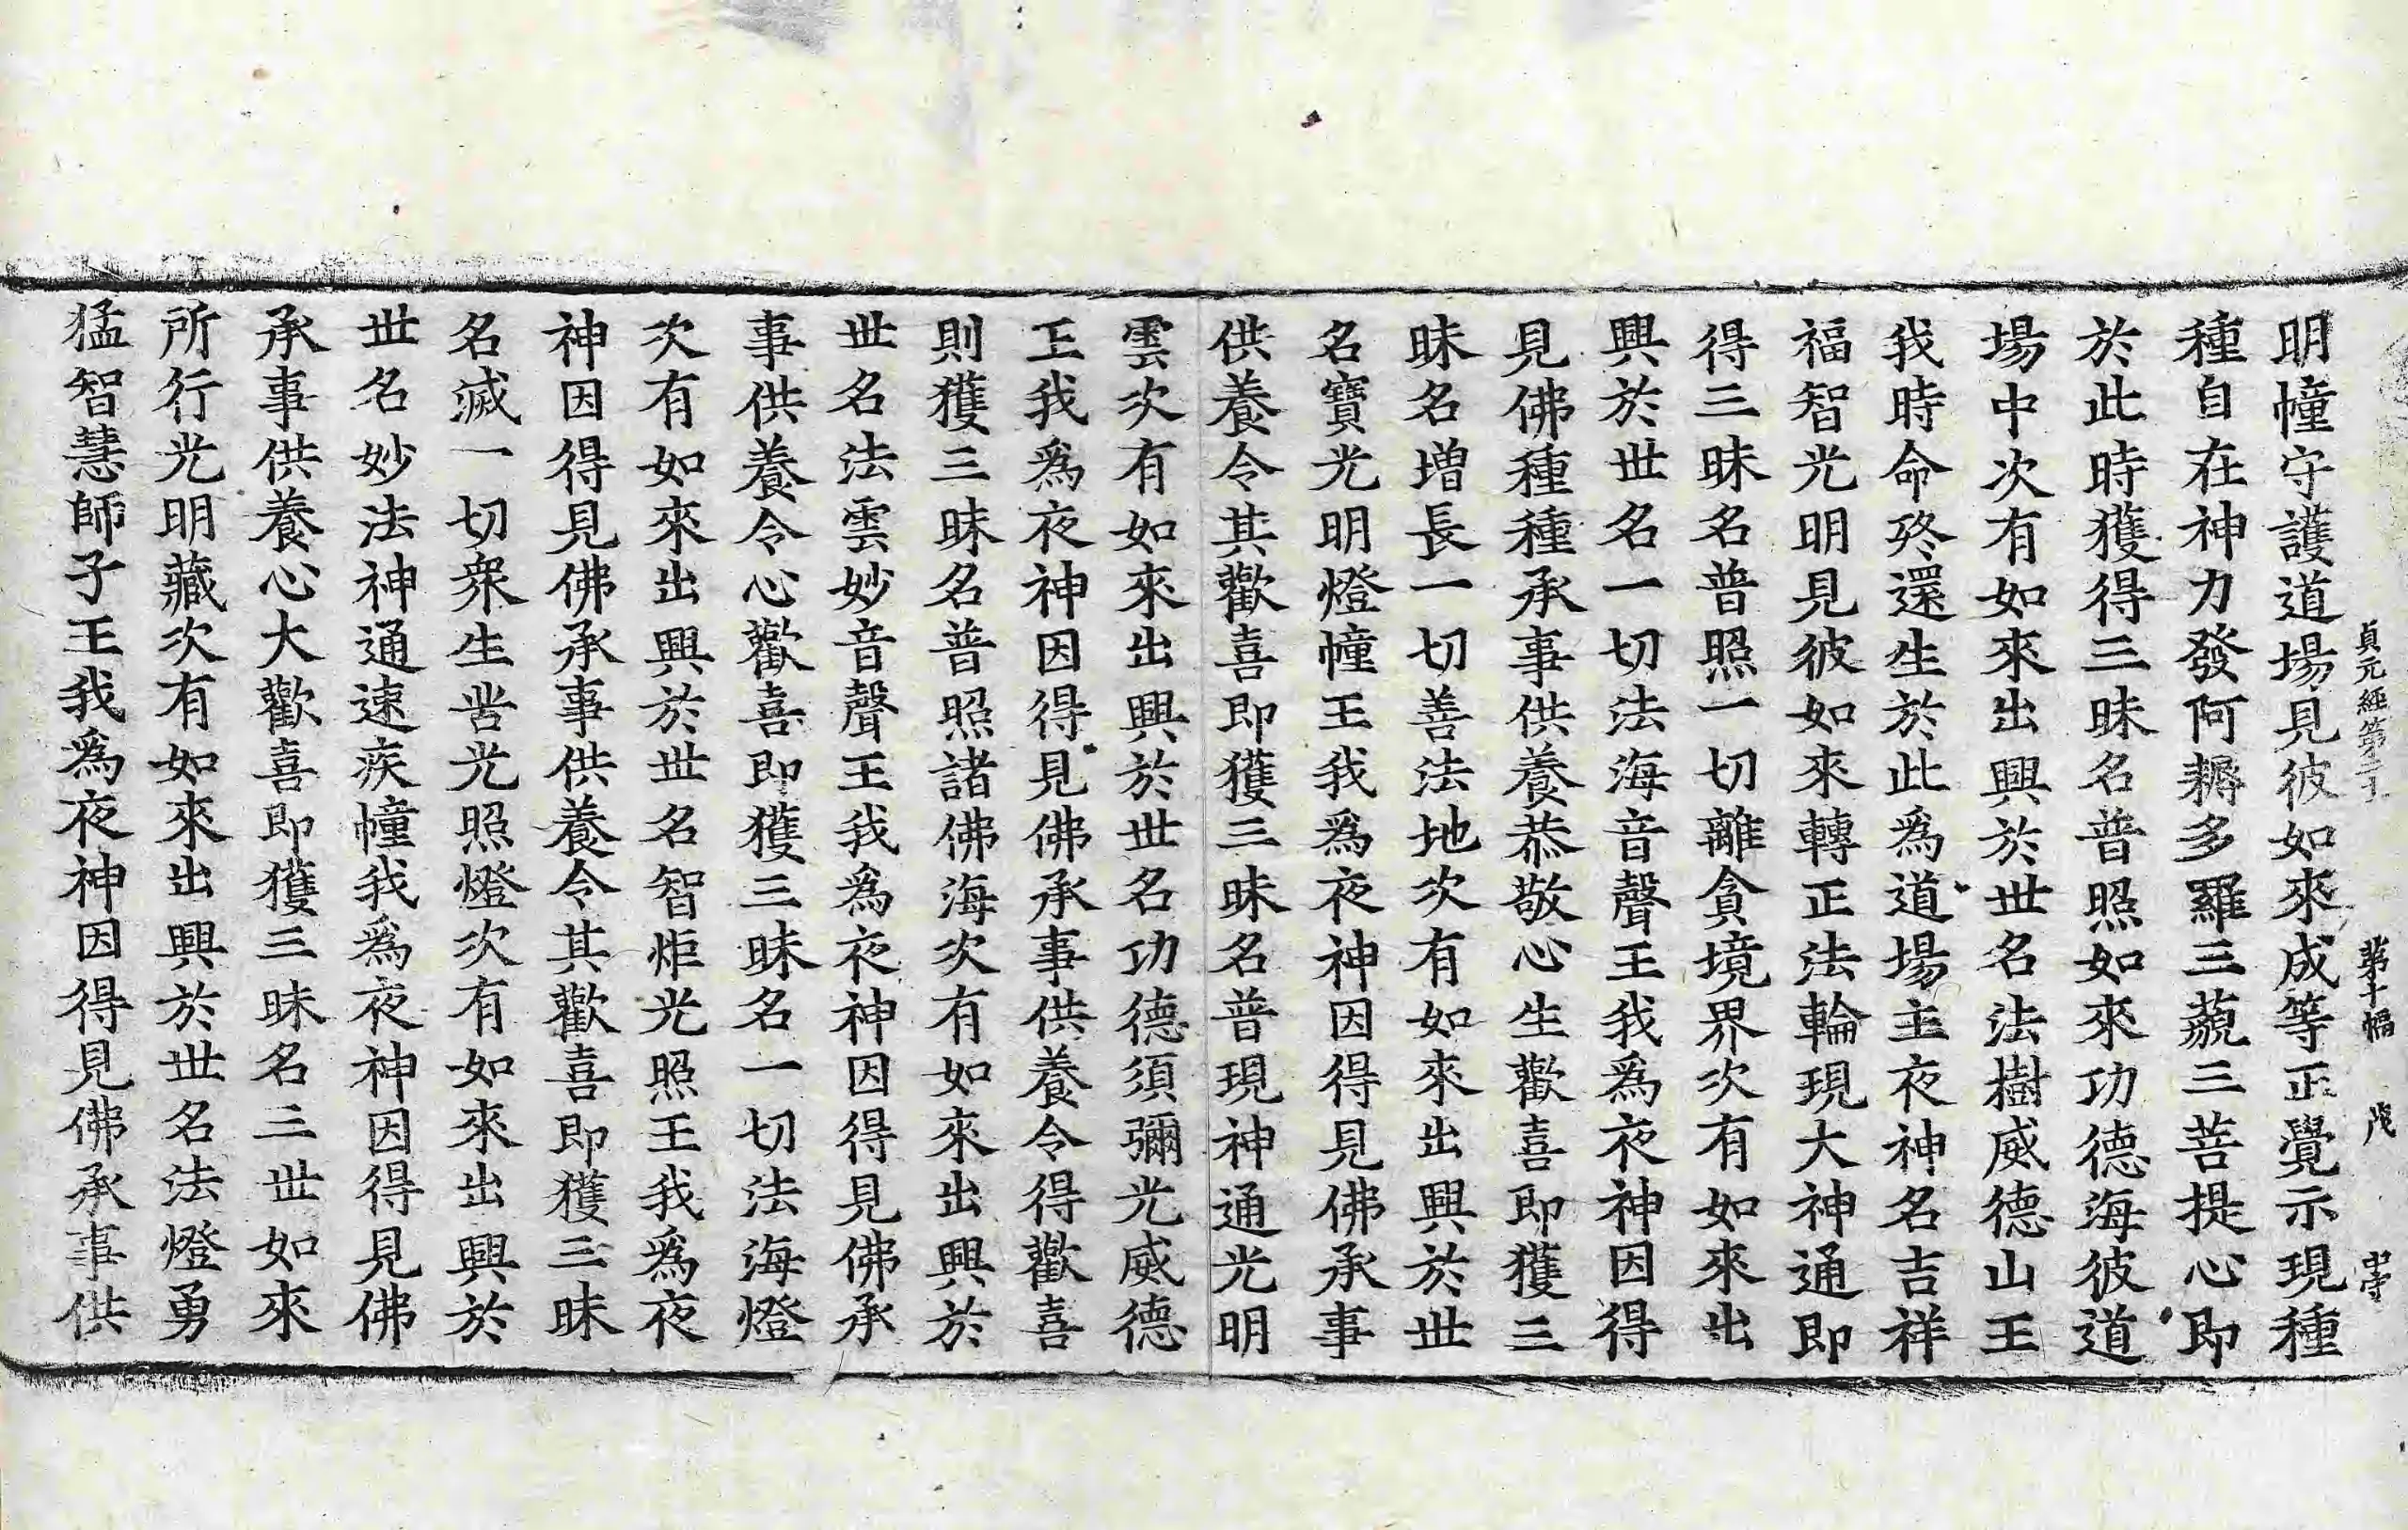 貞元經第二十 第十幅 茂
明幢守護道場見彼如來成等正覺示現種
種自在神力發阿耨多羅三藐三菩提心即
於此時獲得三昧名普照如來功德海彼道
場中次有如來出興於世名法樹威德山王
我時命終還生於此為道場主夜神名吉祥
福智光明見彼如來轉正法輪現大神通即
得三昧名普照一切離貪境界次有如來出
興於世名一切法海音聲王我為夜神因得
見佛種種承事供養恭敬心生歡喜即獲三
昧名增長一切善法地次有如來出興於世
名寶光明燈幢王我為夜神因得見佛承事
供養令其歡喜即獲三昧名普現神通光明
雲次有如來出興於世名功德須彌光威德
王我為夜神因得見佛承事供養令得歡喜
則獲三昧名普照諸佛海次有如來出興於
世名法雲妙音聲王我為夜神因得見佛承
事供養令心歡喜即獲三昧名一切法海燈
次有如來出興於世名智炬光照王我為夜
神因得見佛承事供養令其歡喜即獲三昧
名滅一切衆生苦光照燈次有如來出興於
世名妙法神通速疾幢我為夜神因得見佛
承事供養心大歡喜即獲三昧名三世如來
所行光明藏次有如來出興於世名法燈勇
猛智慧師子王我為夜神因得見佛承事供